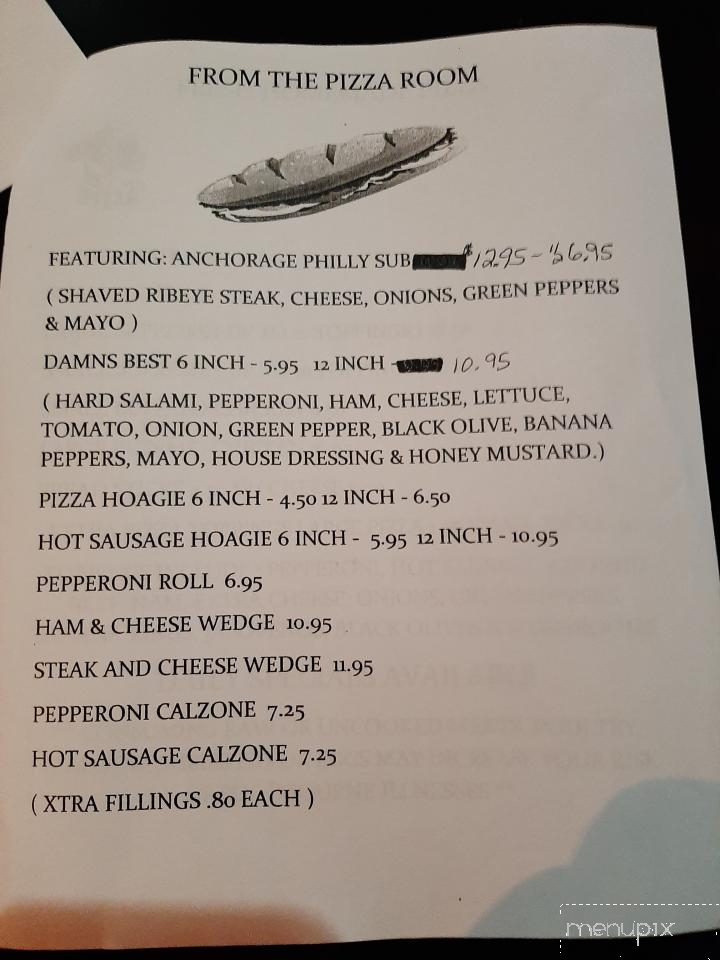 FROM THE PIZZA ROOM
FEATURING: ANCHORAGE PHILLY SUB $12.95 - $6.95
( SHAVED RIBEYE STEAK, CHEESE, ONIONS, GREEN PEPPERS
& MAYO )
DAMNS BEST 6 INCH - 5.95 12 INCH - 10.95
( HARD SALAMI, PEPPERONI, HAM, CHEESE, LETTUCE,
TOMATO, ONION, GREEN PEPPER, BLACK OLIVE, BANANA
PEPPERS, MAYO, HOUSE DRESSING & HONEY MUSTARD.)
PIZZA HOAGIE 6 INCH - 4.50 12 INCH - 6.50
HOT SAUSAGE HOAGIE 6 INCH - 5.95 12 INCH - 10.95
PEPPERONI ROLL 6.95
HAM & CHEESE WEDGE 10.95
STEAK AND CHEESE WEDGE 11.95
PEPPERONI CALZONE 7.25
HOT SAUSAGE CALZONE 7.25
( XTRA FILLINGS .80 EACH )
menupix